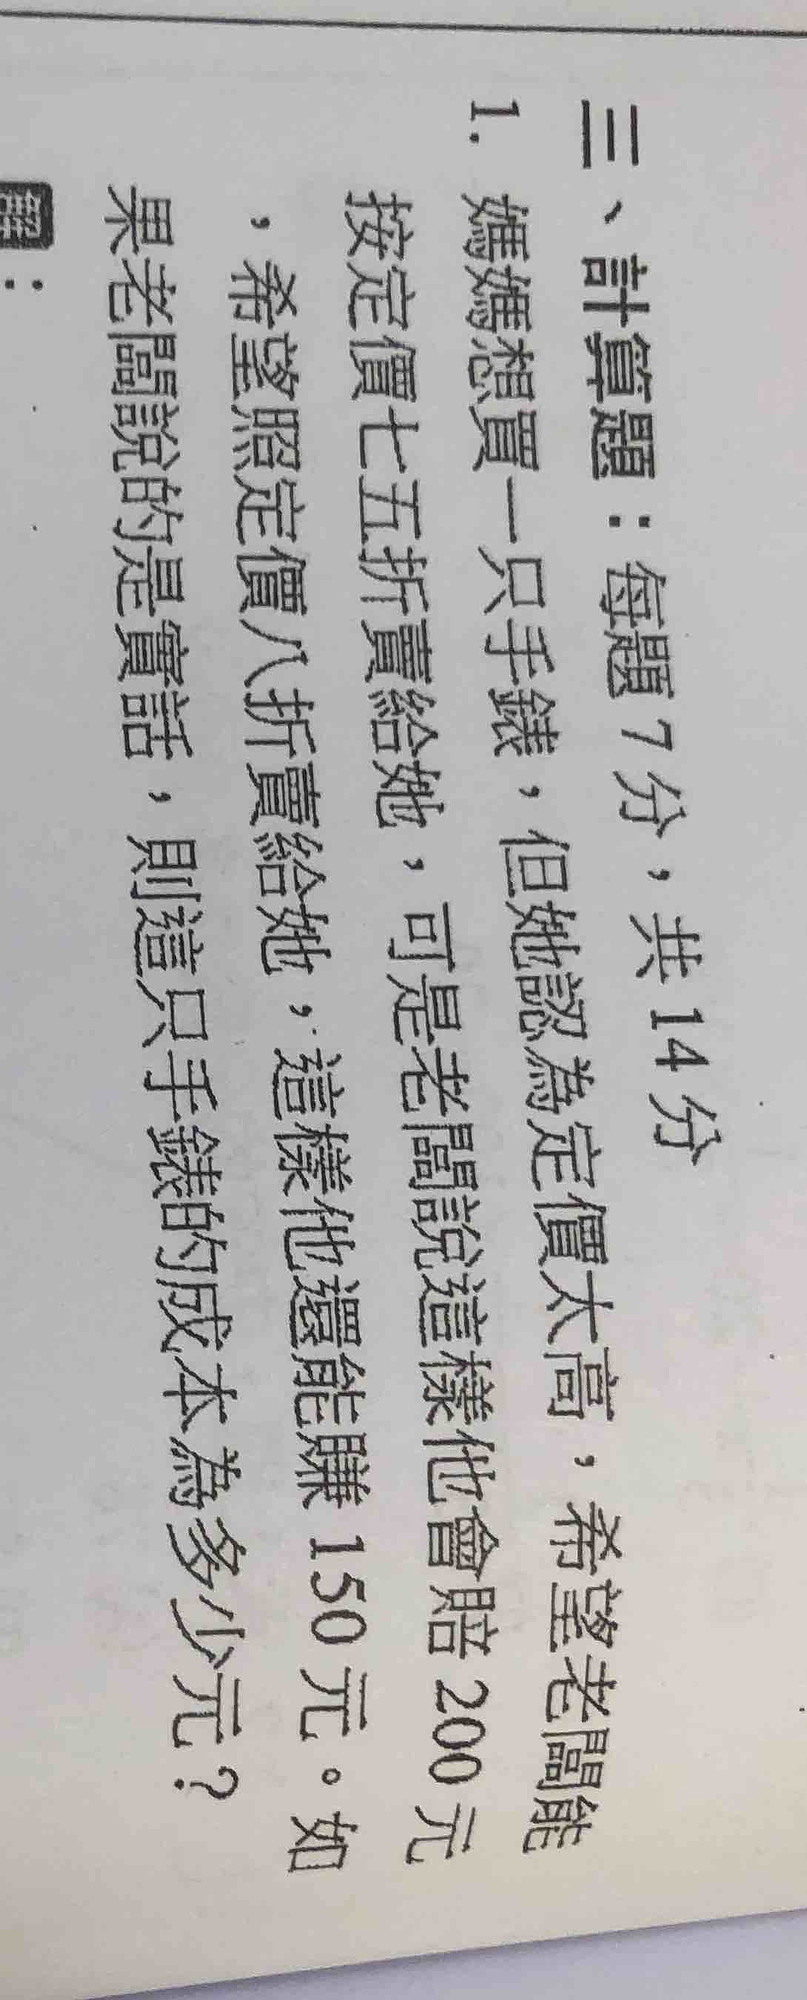 三、計算題：每題7分，共14分
1. 媽媽想買一只手錶，但她認為定價太高，希望老闆能
按定價七五折賣給她，可是老闆說這樣他會賠200元
，希望照定價八折賣給她，這樣他還能賺150元。如
果老闆說的是實話，則這只手錶的成本為多少元？
解：